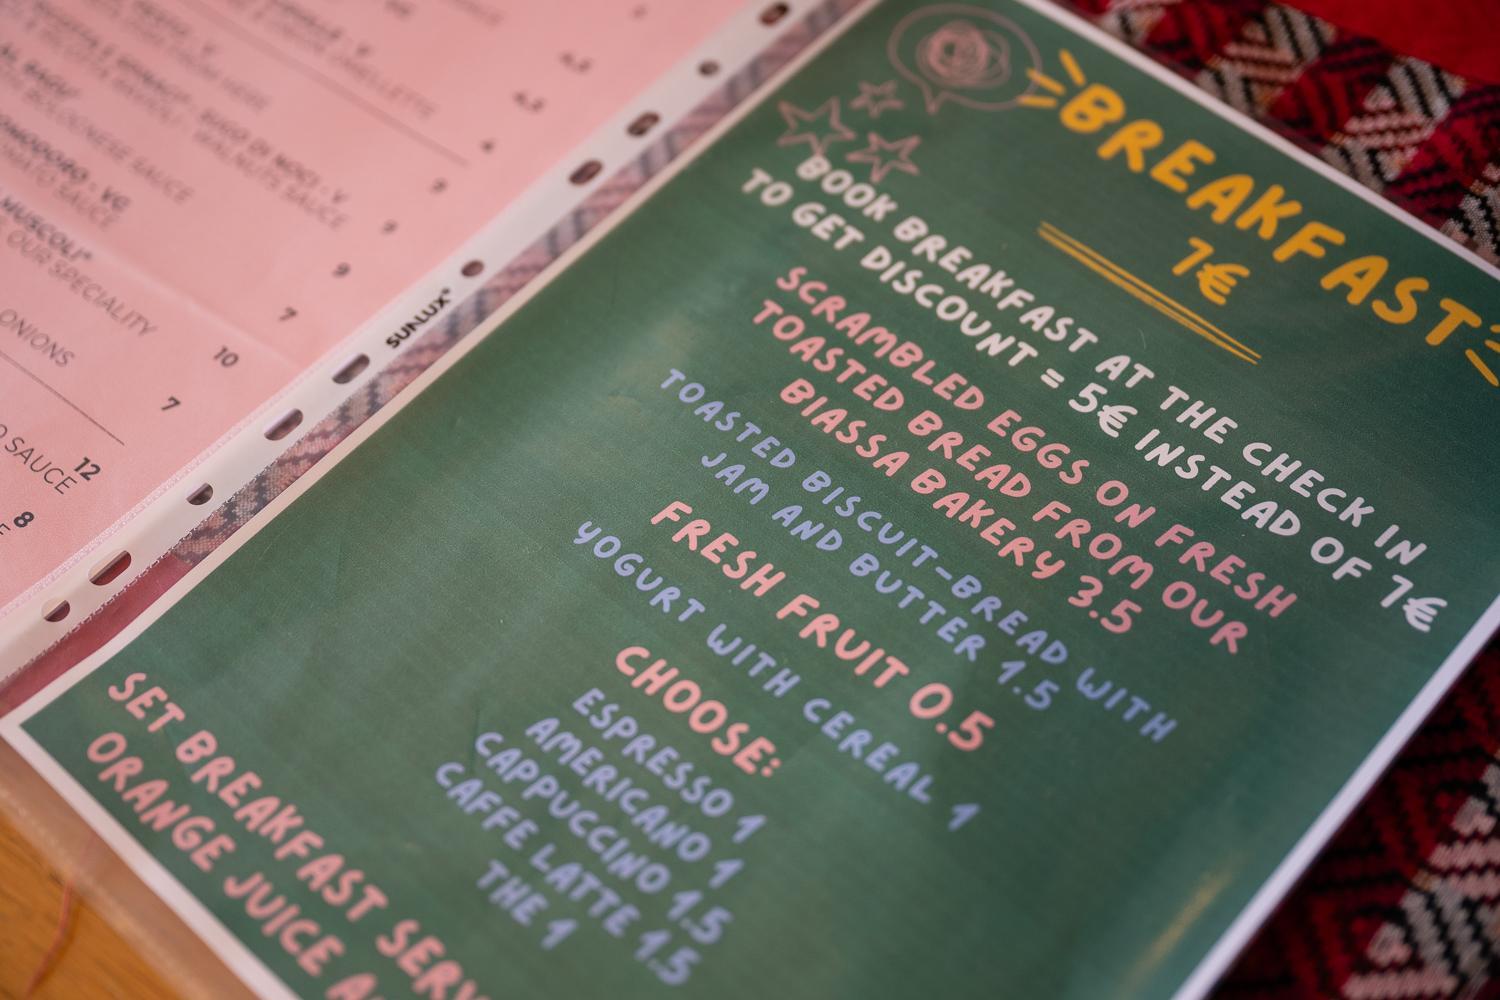 V
4,5
4,5
4
9
SUGO DI NOCI - V
WALNUTS SAUCE
9
BOLOGNESE SAUCE
9
POMODORO - VG
TOMATO SAUCE
7
MUSCOLI*
OUR SPECIALITY
10
ONIONS
7
SAUCE
12
8
SUNLUX®
BREAKFAST
7€
BOOK BREAKFAST AT THE CHECK IN
TO GET DISCOUNT = 5€ INSTEAD OF 7€
SCRAMBLED EGGS ON FRESH
TOASTED BREAD FROM OUR
BIASSA BAKERY 3.5
TOASTED BISCUIT-BREAD WITH
JAM AND BUTTER 1.5
FRESH FRUIT 0.5
YOGURT WITH CEREAL 1
CHOOSE:
ESPRESSO 1
AMERICANO 1
CAPPUCCINO 1.5
CAFFE LATTE 1.5
THE 1
SET BREAKFAST SERV
ORANGE JUICE A